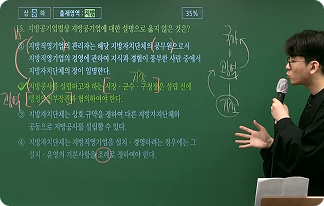 상 중 하 출제영역·지방 35%
5. 지방공기업법상 지방공기업에 대한 설명으로 옳지 않은 것은?
① 지방직영기업의 관리자는 해당 지방자치단체의 공무원으로서
지방직영기업의 경영에 관하여 지식과 경험이 풍부한 사람 중에서
지방자치단체의 장이 임명한다.
지방공사를 설립하고자 하는 시장·군수·구청장은 설립 전에
행정안전부장관과 협의하여야 한다.
③ 지방자치단체는 상호 규약을 정하여 다른 지방자치단체와
공동으로 지방공사를 설립할 수 있다.
④ 지방자치단체는 지방직영기업을 설치·경영하려는 경우에는 그
설치·운영의 기본사항을 조례로 정하여야 한다.